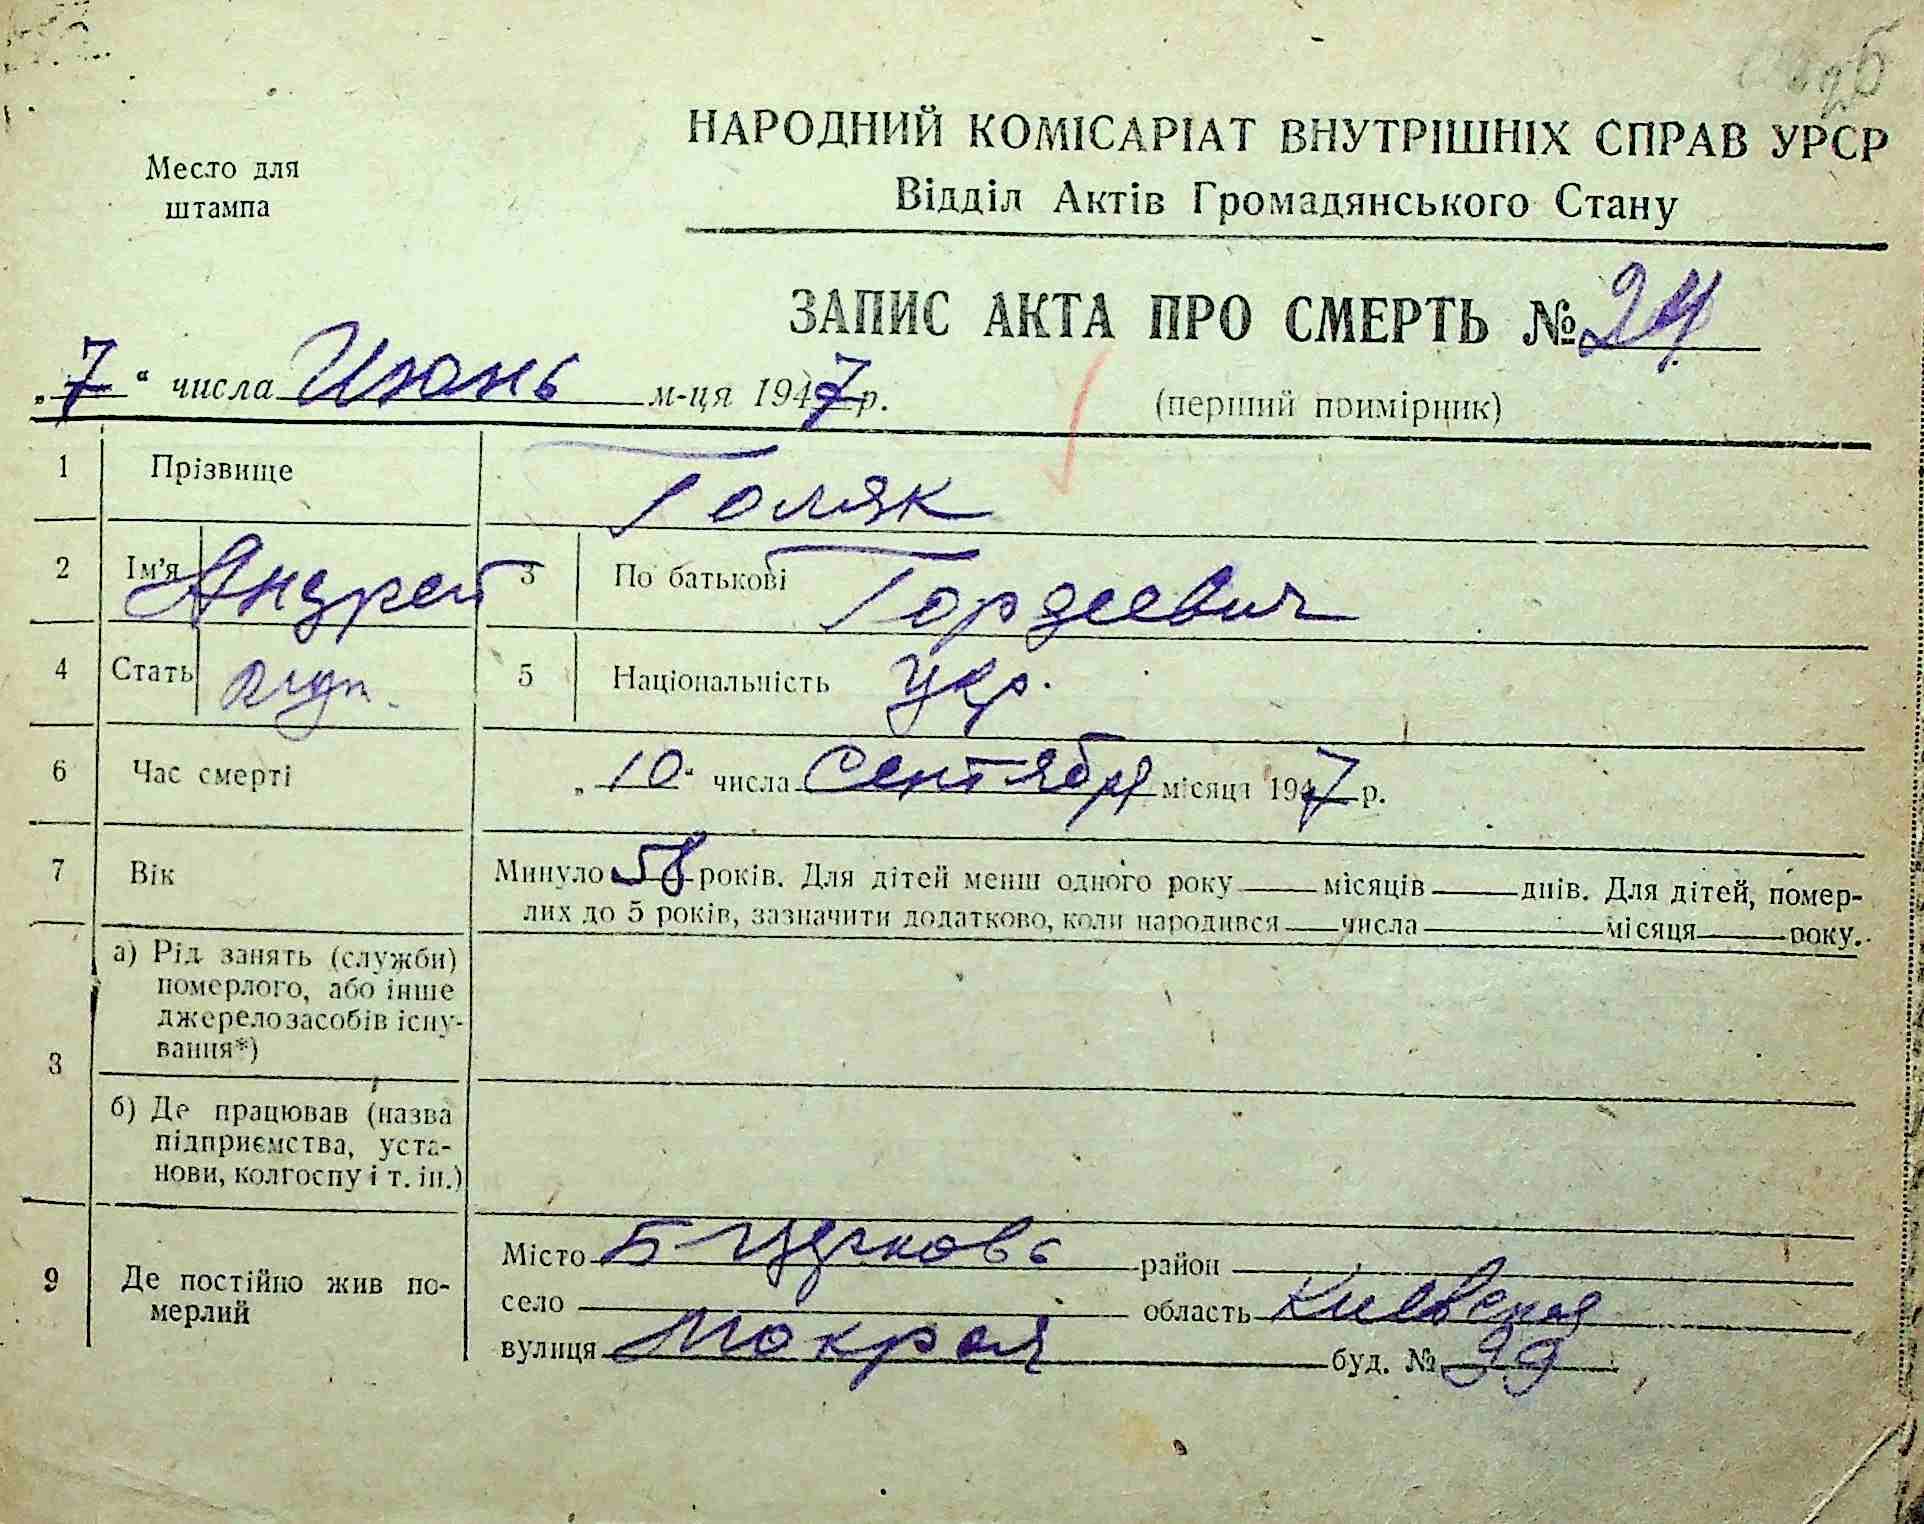 НАРОДНИЙ КОМІСАРІАТ ВНУТРІШНІХ СПРАВ УРСР
Место для
штампа
Відділ Актів Громадянського Стану
ЗАПИС АКТА ПРО СМЕРТЬ № 24
„7“ числа Июнь м-ця 1947 р.
(перший примірник)
1 Прізвище Голяк
2 Ім'я Андрей 3 По батькові Гордеевич
4 Стать муж. 5 Національність Укр.
6 Час смерті „10“ числа Сентября місяця 1947 р.
7 Вік Минуло 58 років. Для дітей менш одного року місяців днів. Для дітей, помер-
лих до 5 років, зазначити додатково, коли народився числа місяця року.
8 а) Рід занять (служби)
померлого, або інше
джерело засобів існу-
вання*)
б) Де працював (назва
підприємства, уста-
нови, колгоспу і т. ін.)
9 Де постійно жив по-
мерлий
Місто Б Церковь район
село область Киевская
вулиця Мокрая буд. № 99